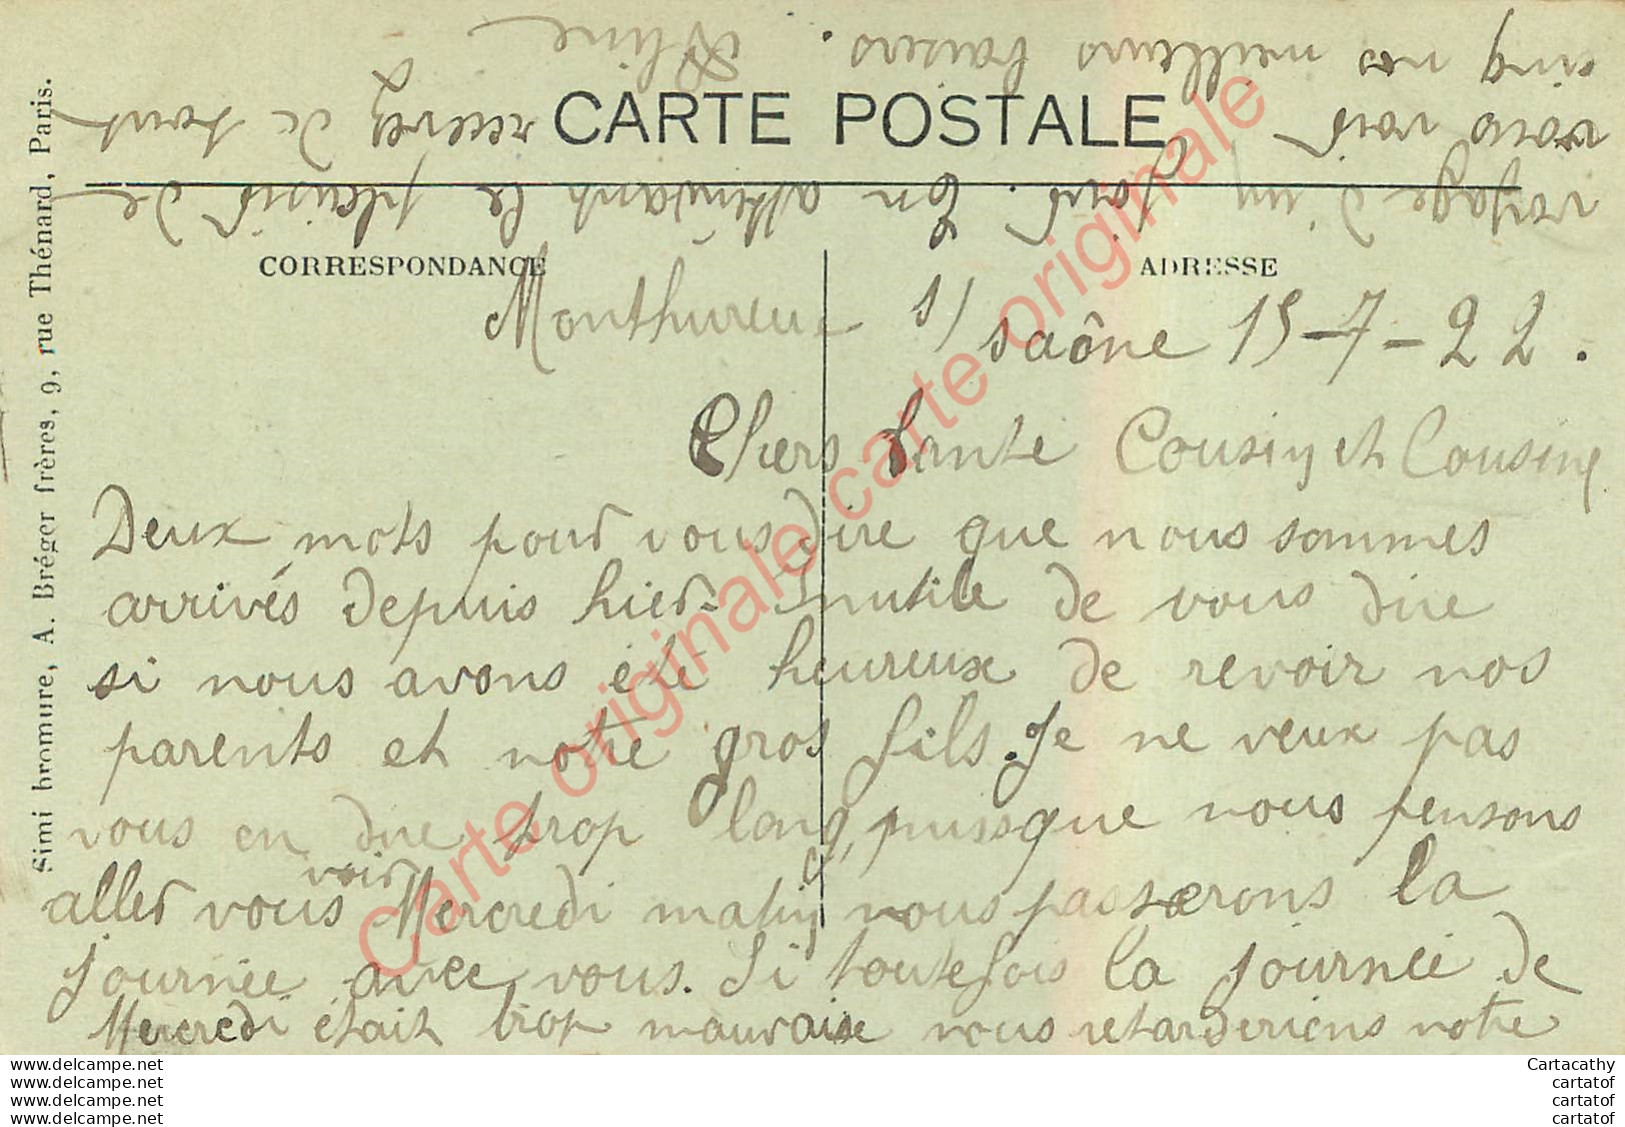 CARTE POSTALE
CORRESPONDANCE
ADRESSE
Simi bromure, A. Bréger frères, 9, rue Thénard, Paris.
Monthureux s/ saône 15-7-22.
Chers Tante Cousin et Cousine
Deux mots pour vous dire que nous sommes
arrivés depuis hier. Inutile de vous dire
si nous avons été heureux de revoir nos
parents et notre gros fils. Je ne veux pas
vous en dire trop long, puisque nous pensons
aller vous voir Mercredi matin, nous passerons la
journée avec vous. Si toutefois la journée de
Mercredi était trop mauvaise nous retarderions notre
voyage d'un jour. En attendant le plaisir de
vous voir recevez de tout
cinq nos meilleurs baisers.
Carte originale carte originale carte originale
www.delcampe.net
www.delcampe.net
www.delcampe.net
www.delcampe.net
Cartacathy
cartatof
cartatof
cartatof